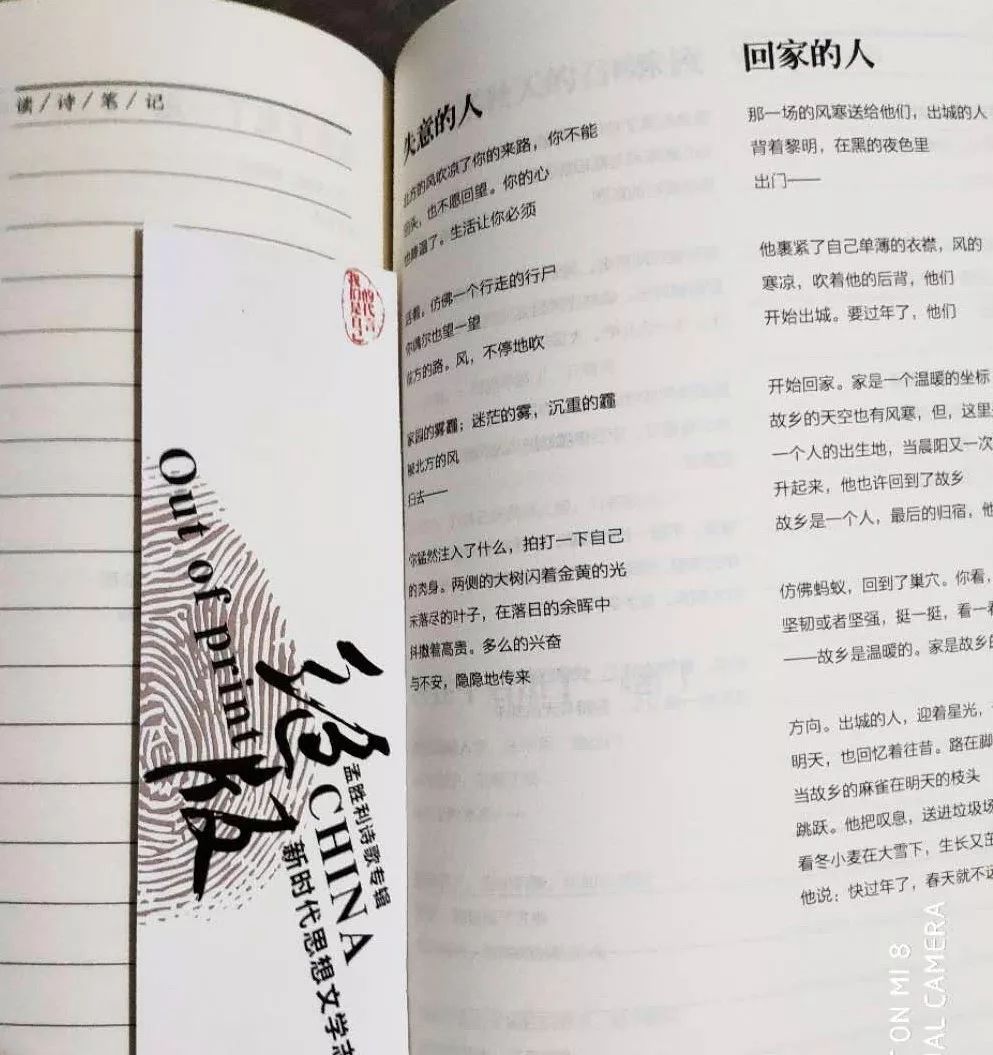 读/诗/笔/记
我们是自己
的代言
Out of print
绝版
CHINA
孟胜利诗歌专辑
新时代思想文学
失意的人
北方的风吹凉了你的来路，你不能
回头，也不愿回望。你的心
也降温了。生活让你必须
活着，仿佛一个行走的行尸
你偶尔也望一望
前方的路。风，不停地吹
家园的雾霾；迷茫的雾，沉重的霾
被北方的风
扫去——
你猛然注入了什么，拍打一下自己
的肉身。两侧的大树闪着金黄的光
未落尽的叶子，在落日的余晖中
抖擞着高贵。多么的兴奋
与不安，隐隐地传来
回家的人
那一场的风寒送给他们，出城的人
背着黎明，在黑的夜色里
出门——
他裹紧了自己单薄的衣襟，风的
寒凉，吹着他的后背，他们
开始出城。要过年了，他们
开始回家。家是一个温暖的坐标
故乡的天空也有风寒，但，这里
一个人的出生地，当晨阳又一次
升起来，他也许回到了故乡
故乡是一个人，最后的归宿，他
仿佛蚂蚁，回到了巢穴。你看，
坚韧或者坚强，挺一挺，看一看
——故乡是温暖的。家是故乡的
方向。出城的人，迎着星光，
明天，也回忆着往昔。路在脚
当故乡的麻雀在明天的枝头
跳跃。他把叹息，送进垃圾场
看冬小麦在大雪下，生长又
他说：快过年了，春天就不远
ON MI 8
AL CAMERA